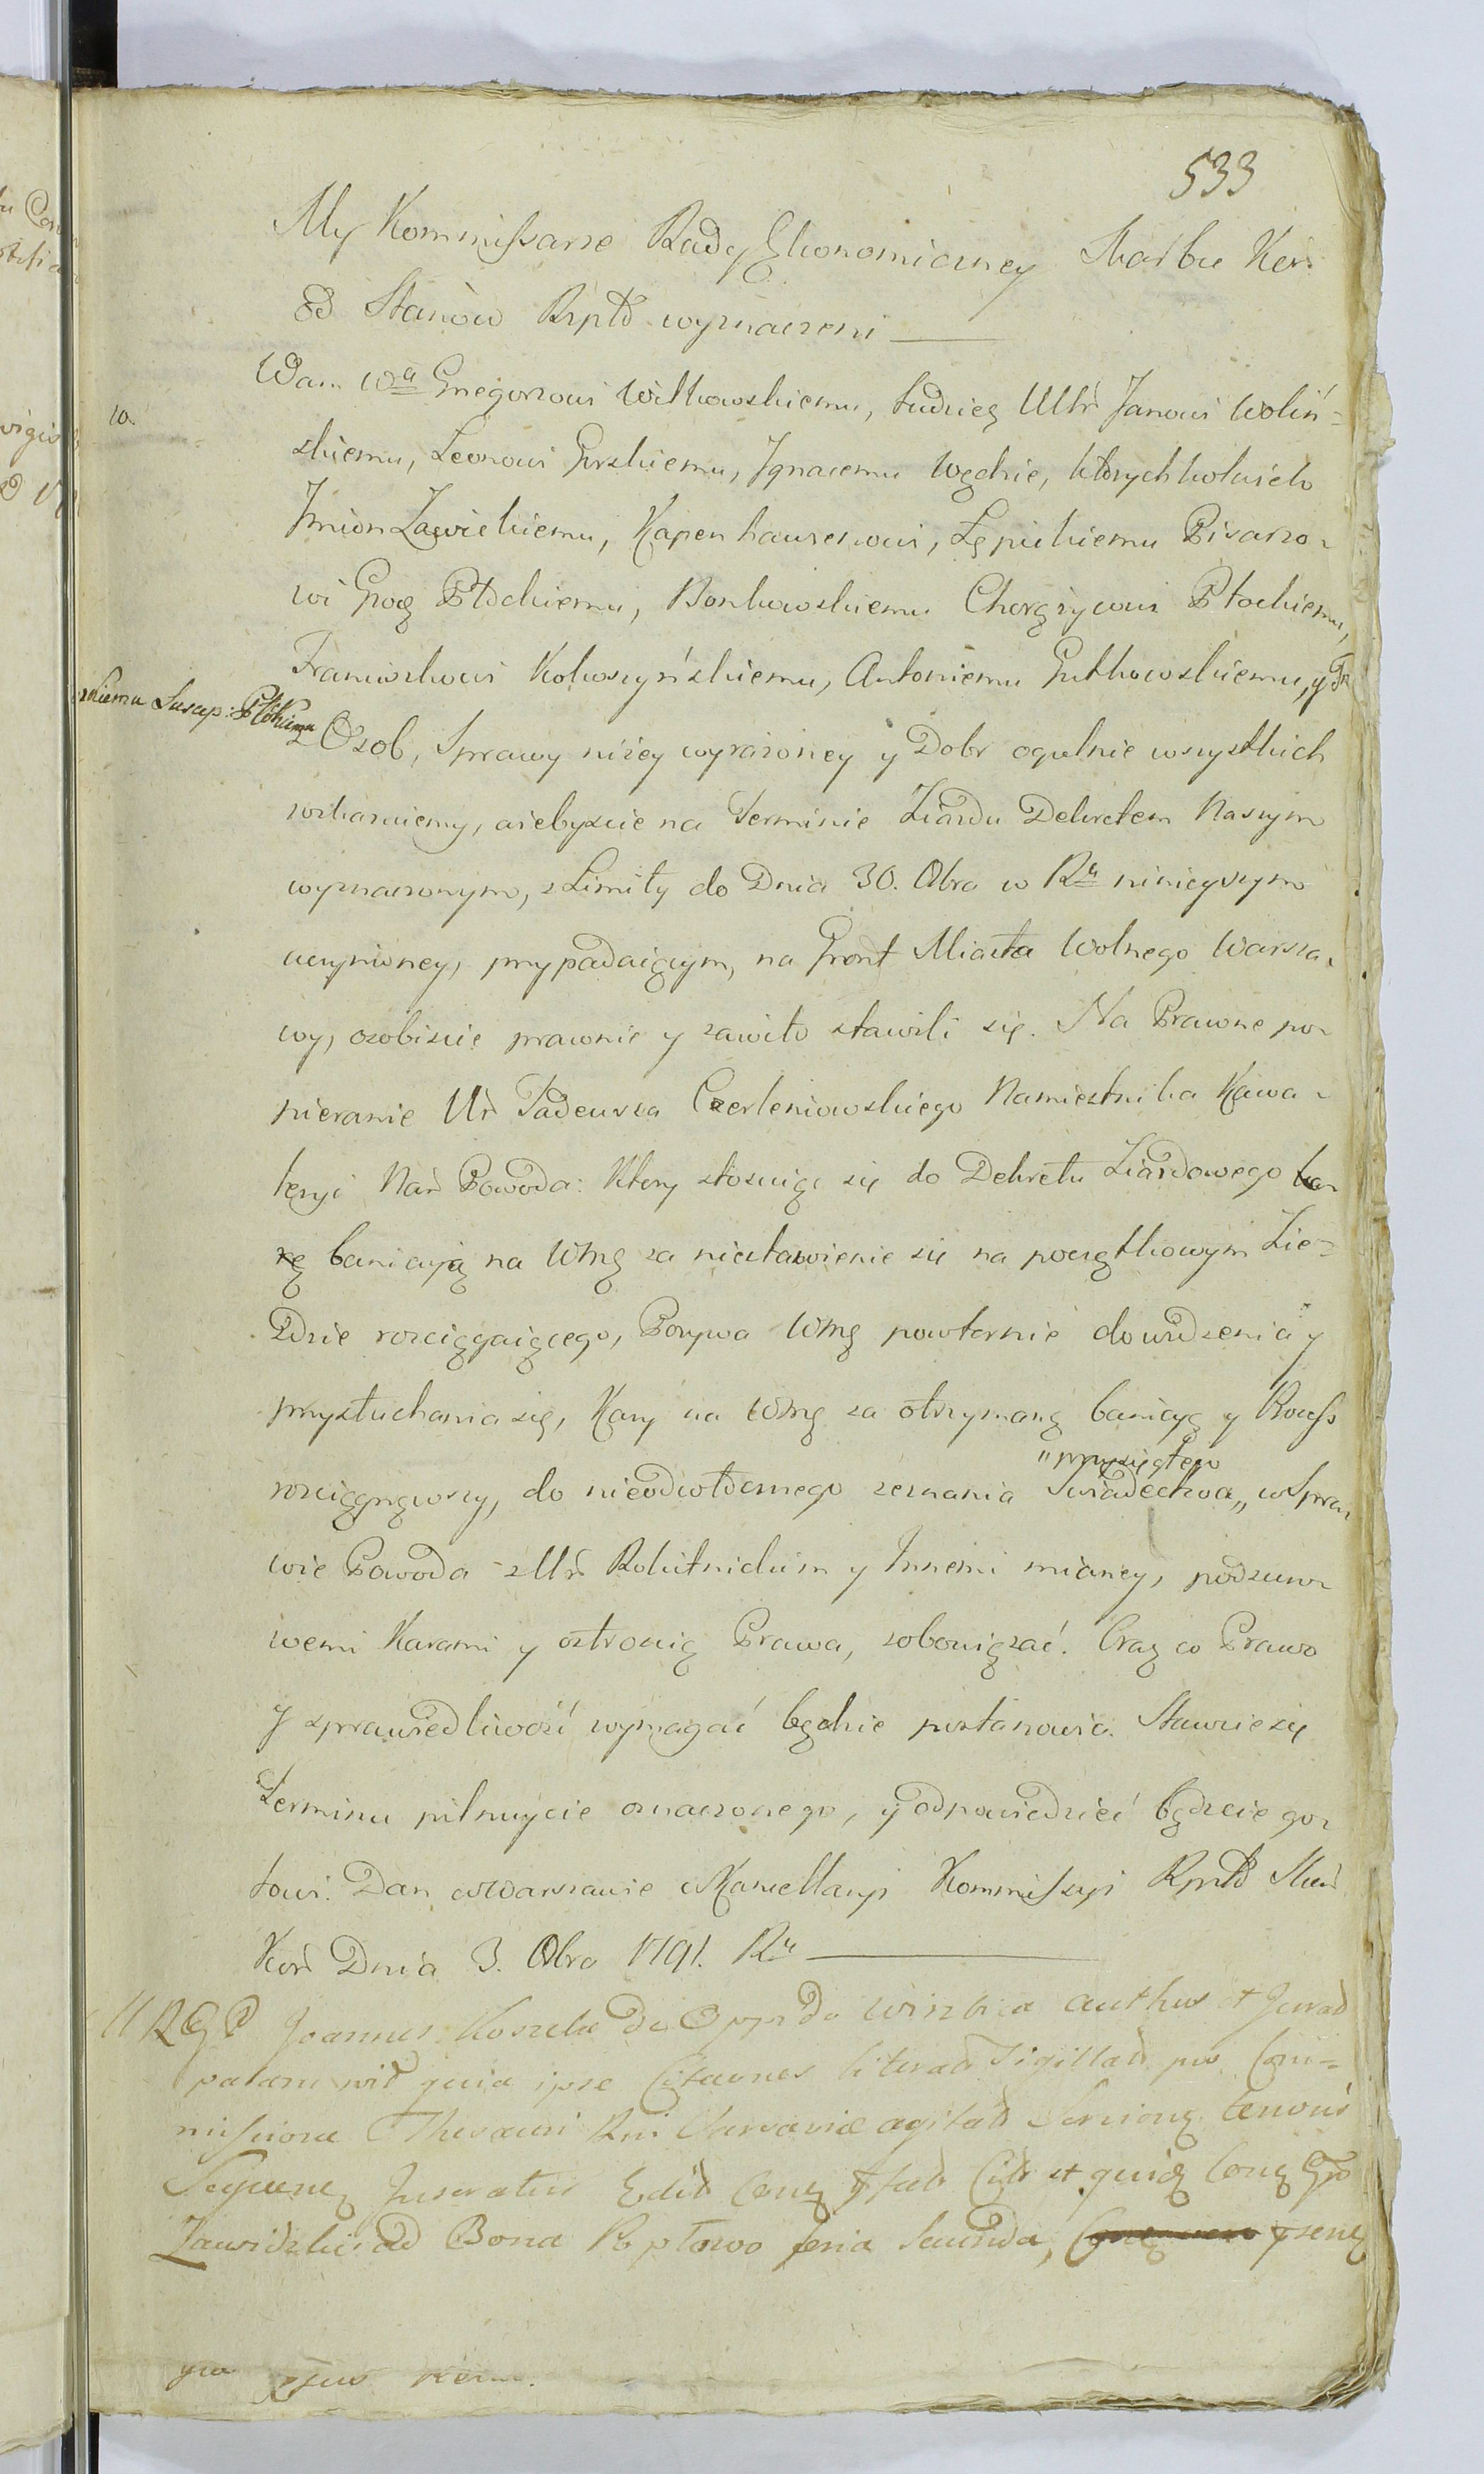 533
My Kommissarze Rady Ekonomiczney Skarbu Kor:
Od Stanow Rzpltt wyznaczeni
10.
Wam Wu Grzegorzowi Witkowskiemu, tudzież UUr Janowi Woliń=
skiemu, Leonowi Gorskiemu, Ignacemu Wędzie, ktorychkolwiek
Imion Zawickiemu, Kapenhauzerowi, Łępickiemu Pisarzo-
wi Grog Płockiemu, Bonkowskiemu Chorążycowi Płockiemu,
Franciszkowi Kolwszyńskiemu, Antoniemu Gutkowskiemu, y
skiemu Suscep: Płockiemu
z Osob, Sprawy niżey wyrażoney y Dobr ogulnie wszystkich
wskazuiemy, ażebyscie na Terminie Ziazdu Dekretem Naszym
wyznaczonym, z Limity do Dnia 30. Obra w Ru ninieyszym
uczynioney, przypadaiącym, na Gront Miasta Wolnego Warsza-
wy, osobiscie prawnie y zawito stawili się. Na Prawne po-
pieranie Ur Tadeusza Czerleniowskiego Namiestnika Kawa-
leryi Nar Powoda: Ktory stosuiąc się do Dekretu Ziazdowego ka-
rę banicyią na Wmę za niestawienie się na początkowym Zie=
zdzie rozciągaiącego, Pozywa Wmę powtornie do widzenia y
przysłuchania się, Kary na Wmę za otrzymaną banicyą y Process
rozciągnąwszy, do nieodwołdanego zeznania Swiadectwa,, w Spra-
"przysięgłego
wie Powoda z Ur Rokitnickim y Innemi mianey, pod suro-
wemi Karami y ostrością Prawa, zobowiązać. Oraz co Prawo
y sprawiedliwość wymagać będzie postanowić. Stawcie się
Terminu pilnuycie oznaczonego, y odpowiedzieć będziecie go-
towi. Dan w Warszawie w Kancellaryi Kommissyi Rzpltt Skar
Kor Dnia 3. Obra 1791. Ru
Joannes Koszela de Oppido Winnica authus et Jurad
palam quia ipse Citaones literad Sigillad per Com=
missione Thesauri Rni Varsaviæ agitad tenoris
Sequenę Inseratur
Zawidzki ad Bona Reptowo feria Secunda,